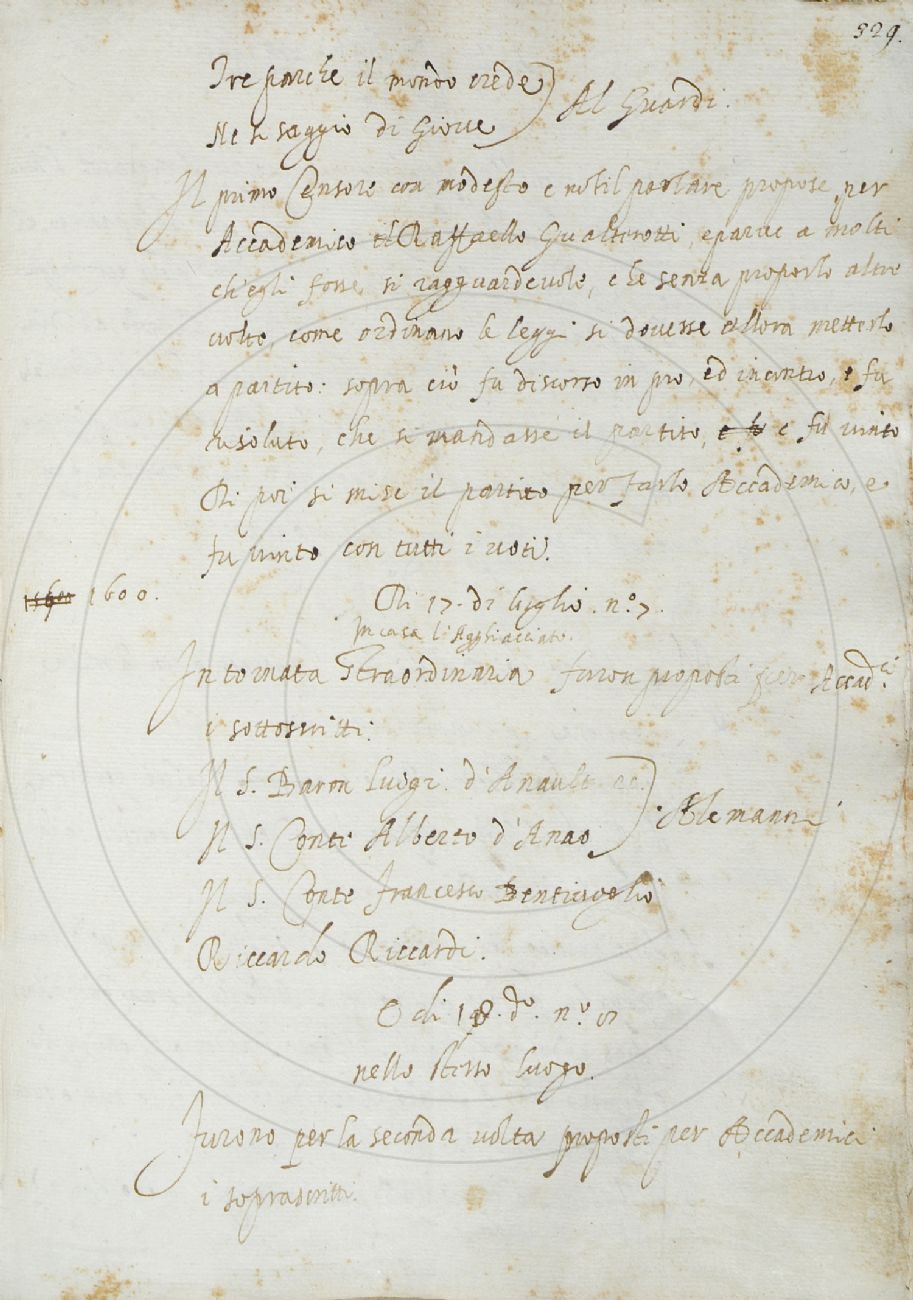 329.
Tre parche il mondo crede
Ne si saggio di Gioue } Al Guardi.
Il primo Censore con modesto e nobil parlare propose per
Accademico il Raffaello Gualterotti, e parue a molti
ch'egli fosse si ragguardeuole, che senza proporlo altre
uolte, come ordinano le leggi si douesse allora metterlo
a partito: sopra ciò fu discorso in pro, ed incontro, e fu
risoluto, che si mandasse il partito, e fù uinto
Di poi si mise il partito per farlo Accademico, e
fu uinto con tutti i uoti.
1600.
Di 17. di luglio. n.o 7.
In casa l'Agghiacciato.
In tornata straordinaria furon proposti per Accad.ci
i sottoscritti:
Il S. Baron Luigi d'Anault
Il S. Conte Alberto d'Anao } Alemanni
Il S. Conte Francesco Bentiuoglio
Riccardo Riccardi.
di 18. do. n.o
nello stesso luogo.
Furono per la seconda uolta proposti per Accademici
i soprascritti.